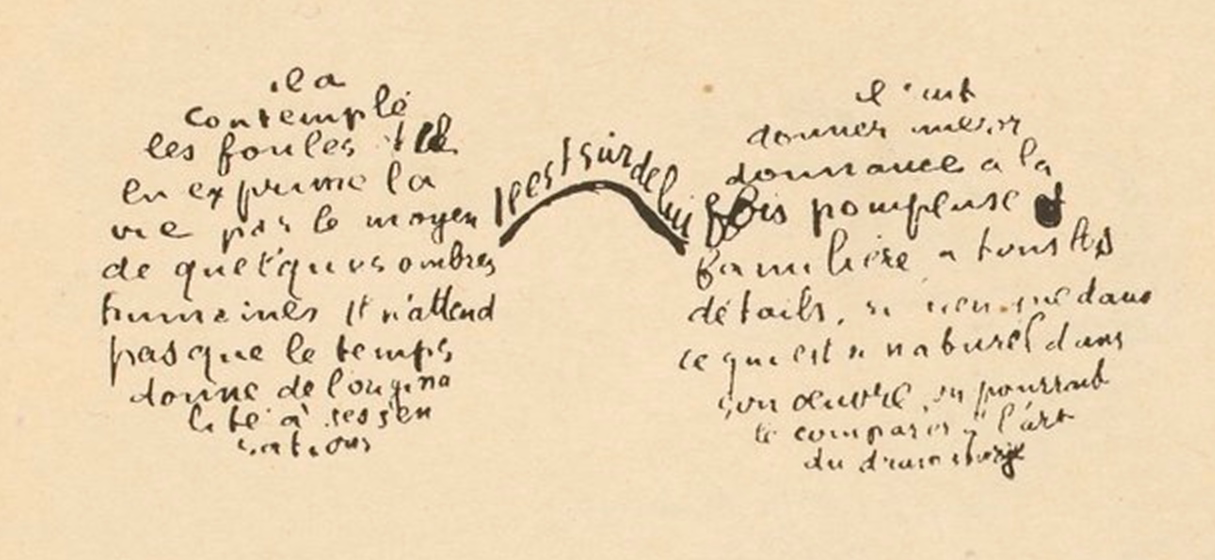 il a
contemplé
les foules et il
en exprime la
vie par le moyen
de quelques ombres
humaines Il n'attend
pas que le temps
donne de l'origina
lité à ses sen
sations
Il est sûr de lui
donner
donnance a la
fois pompeuse et
familière a tous les
détails,
ce qui est si naturel dans
son œuvre, on pourrait
le comparer à l'art
du dramaturge